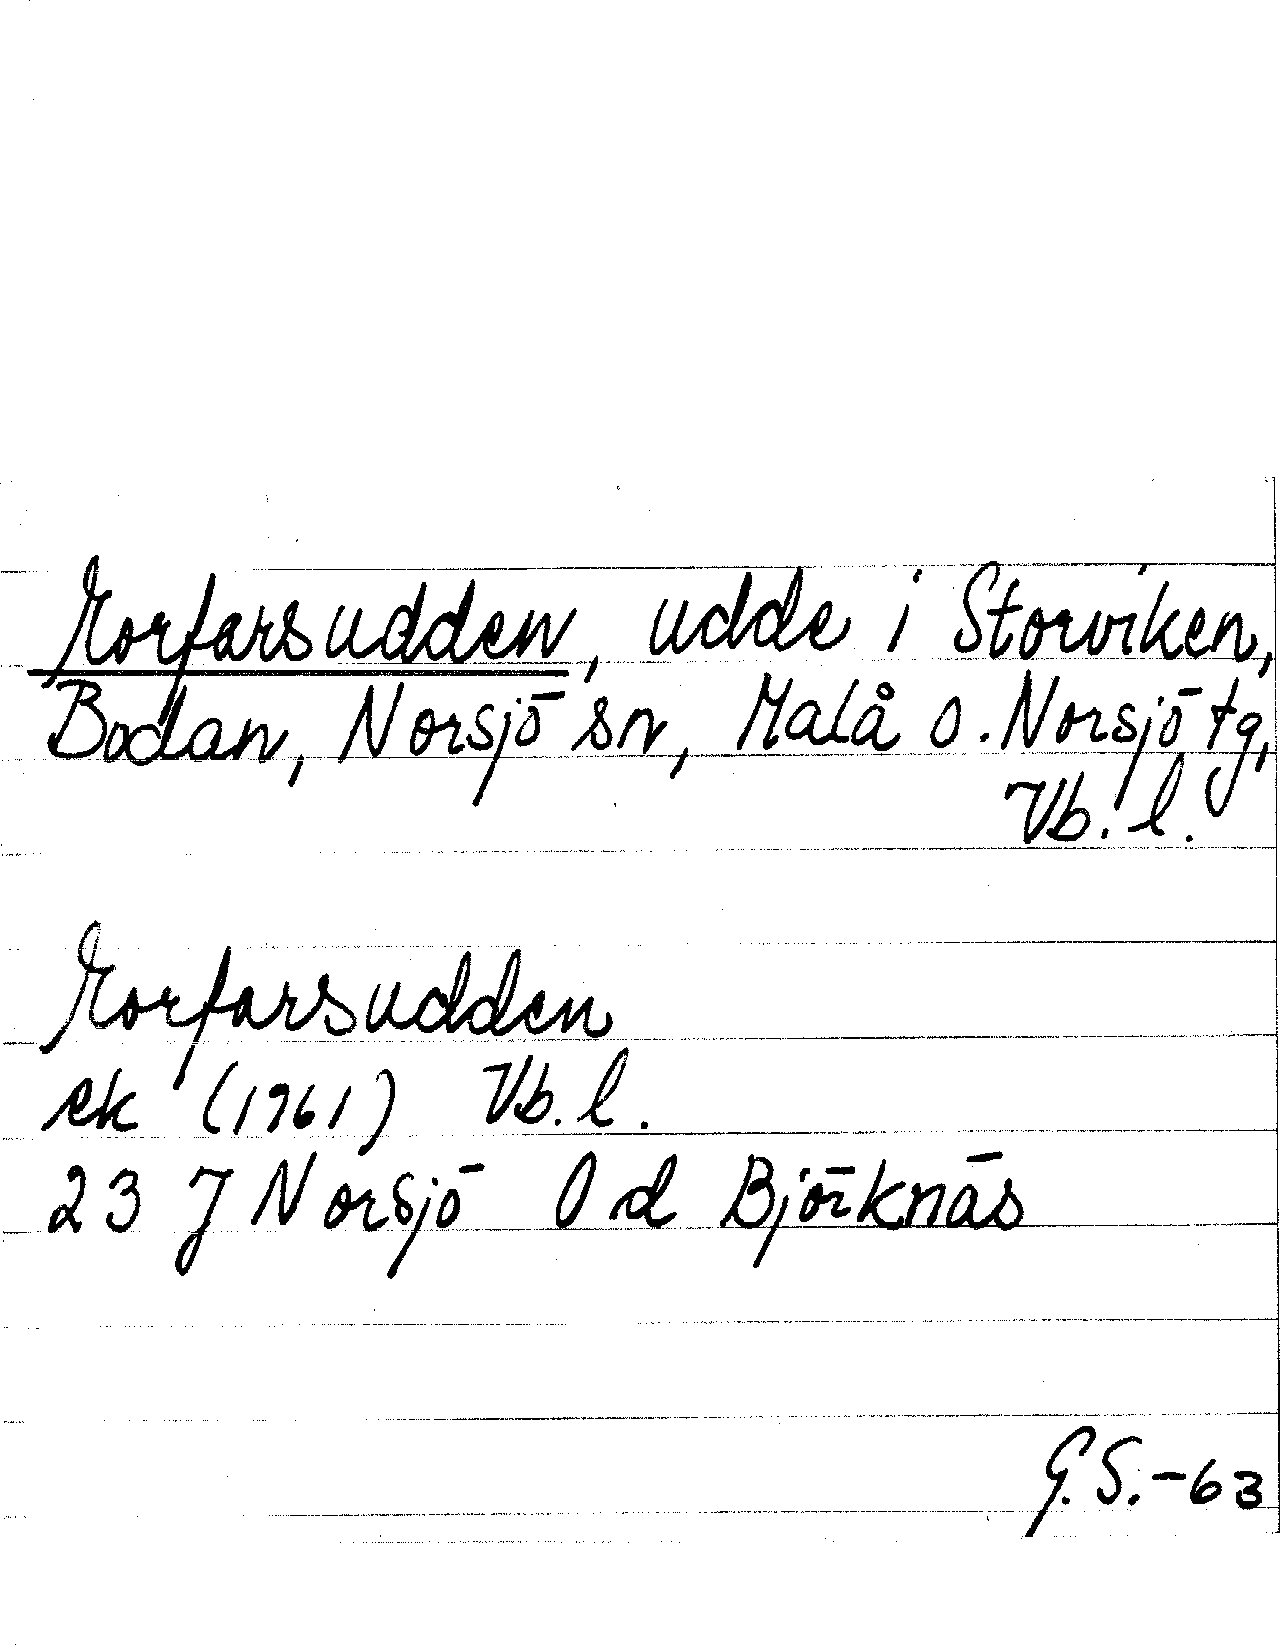 Morfarsudden, udde i Storviken,
Bodan, Norsjö sn, Malå o. Norsjö tg,
Vb. l.
Morfarsudden
ek (1961) Vb. l.
23 J Norsjö 0 d Björknäs
G.S.-63